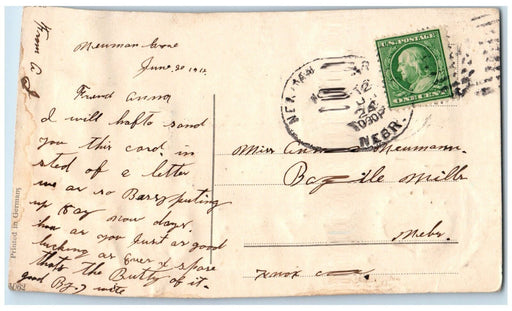 From A.
Newman Grove
June 20 191
Frend Anna
I will hafto sand
you this card. in
sted of a letter
we ar so Bassy puting
up Hay now days.
how ar you Just as good
lucking as ever x spose
thats the Butty of it.
good By. write
Printed in Germany
U.S. POSTAGE
ONE CENT
NEBR.
Miss Anna Neumann.
Bazile Mills
Nebr.
Knox co.